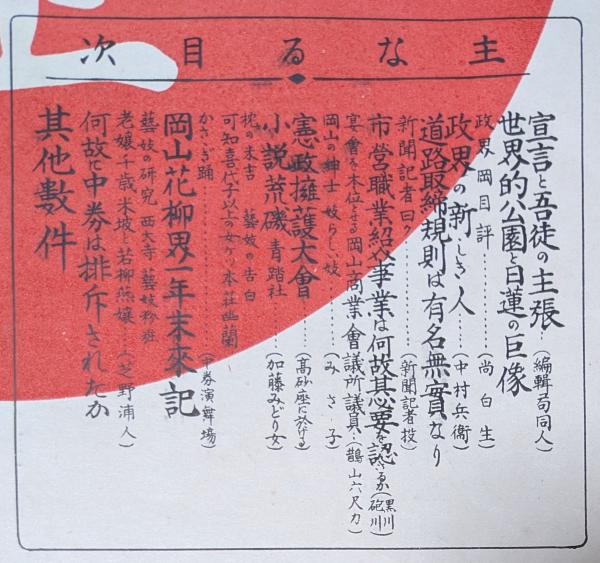 主なる目次
宣言と吾徒の主張（編輯局同人）
世界的公園と日蓮の巨像
政界岡目評………（尚白生）
政界の新しき人……（中村兵衞）
道路取締規則は有名無實なり
新聞記者曰く………（新聞記者投）
市營職業紹介事業は何故甚要を認めざるか（黒川砲川）
宴會を本位とせる岡山商業會議所議員…（鵲山六尺力）
岡山の紳士 妓らし妓……（みさ子）
憲政擁護大會……（高砂座に於ける）
小説荒磯 青踏社……（加藤みどり女）
枕の未吉 藝妓の告白
可知喜代子以上の女ケツ本荘幽蘭
かささぎ踊……（中券演舞場）
岡山花柳界一年末來記
藝妓の研究 西大寺藝妓総班
老孃千歳米坡と若柳燕孃……（芝野浦人）
何故に中券は排斥されたか
其他数件